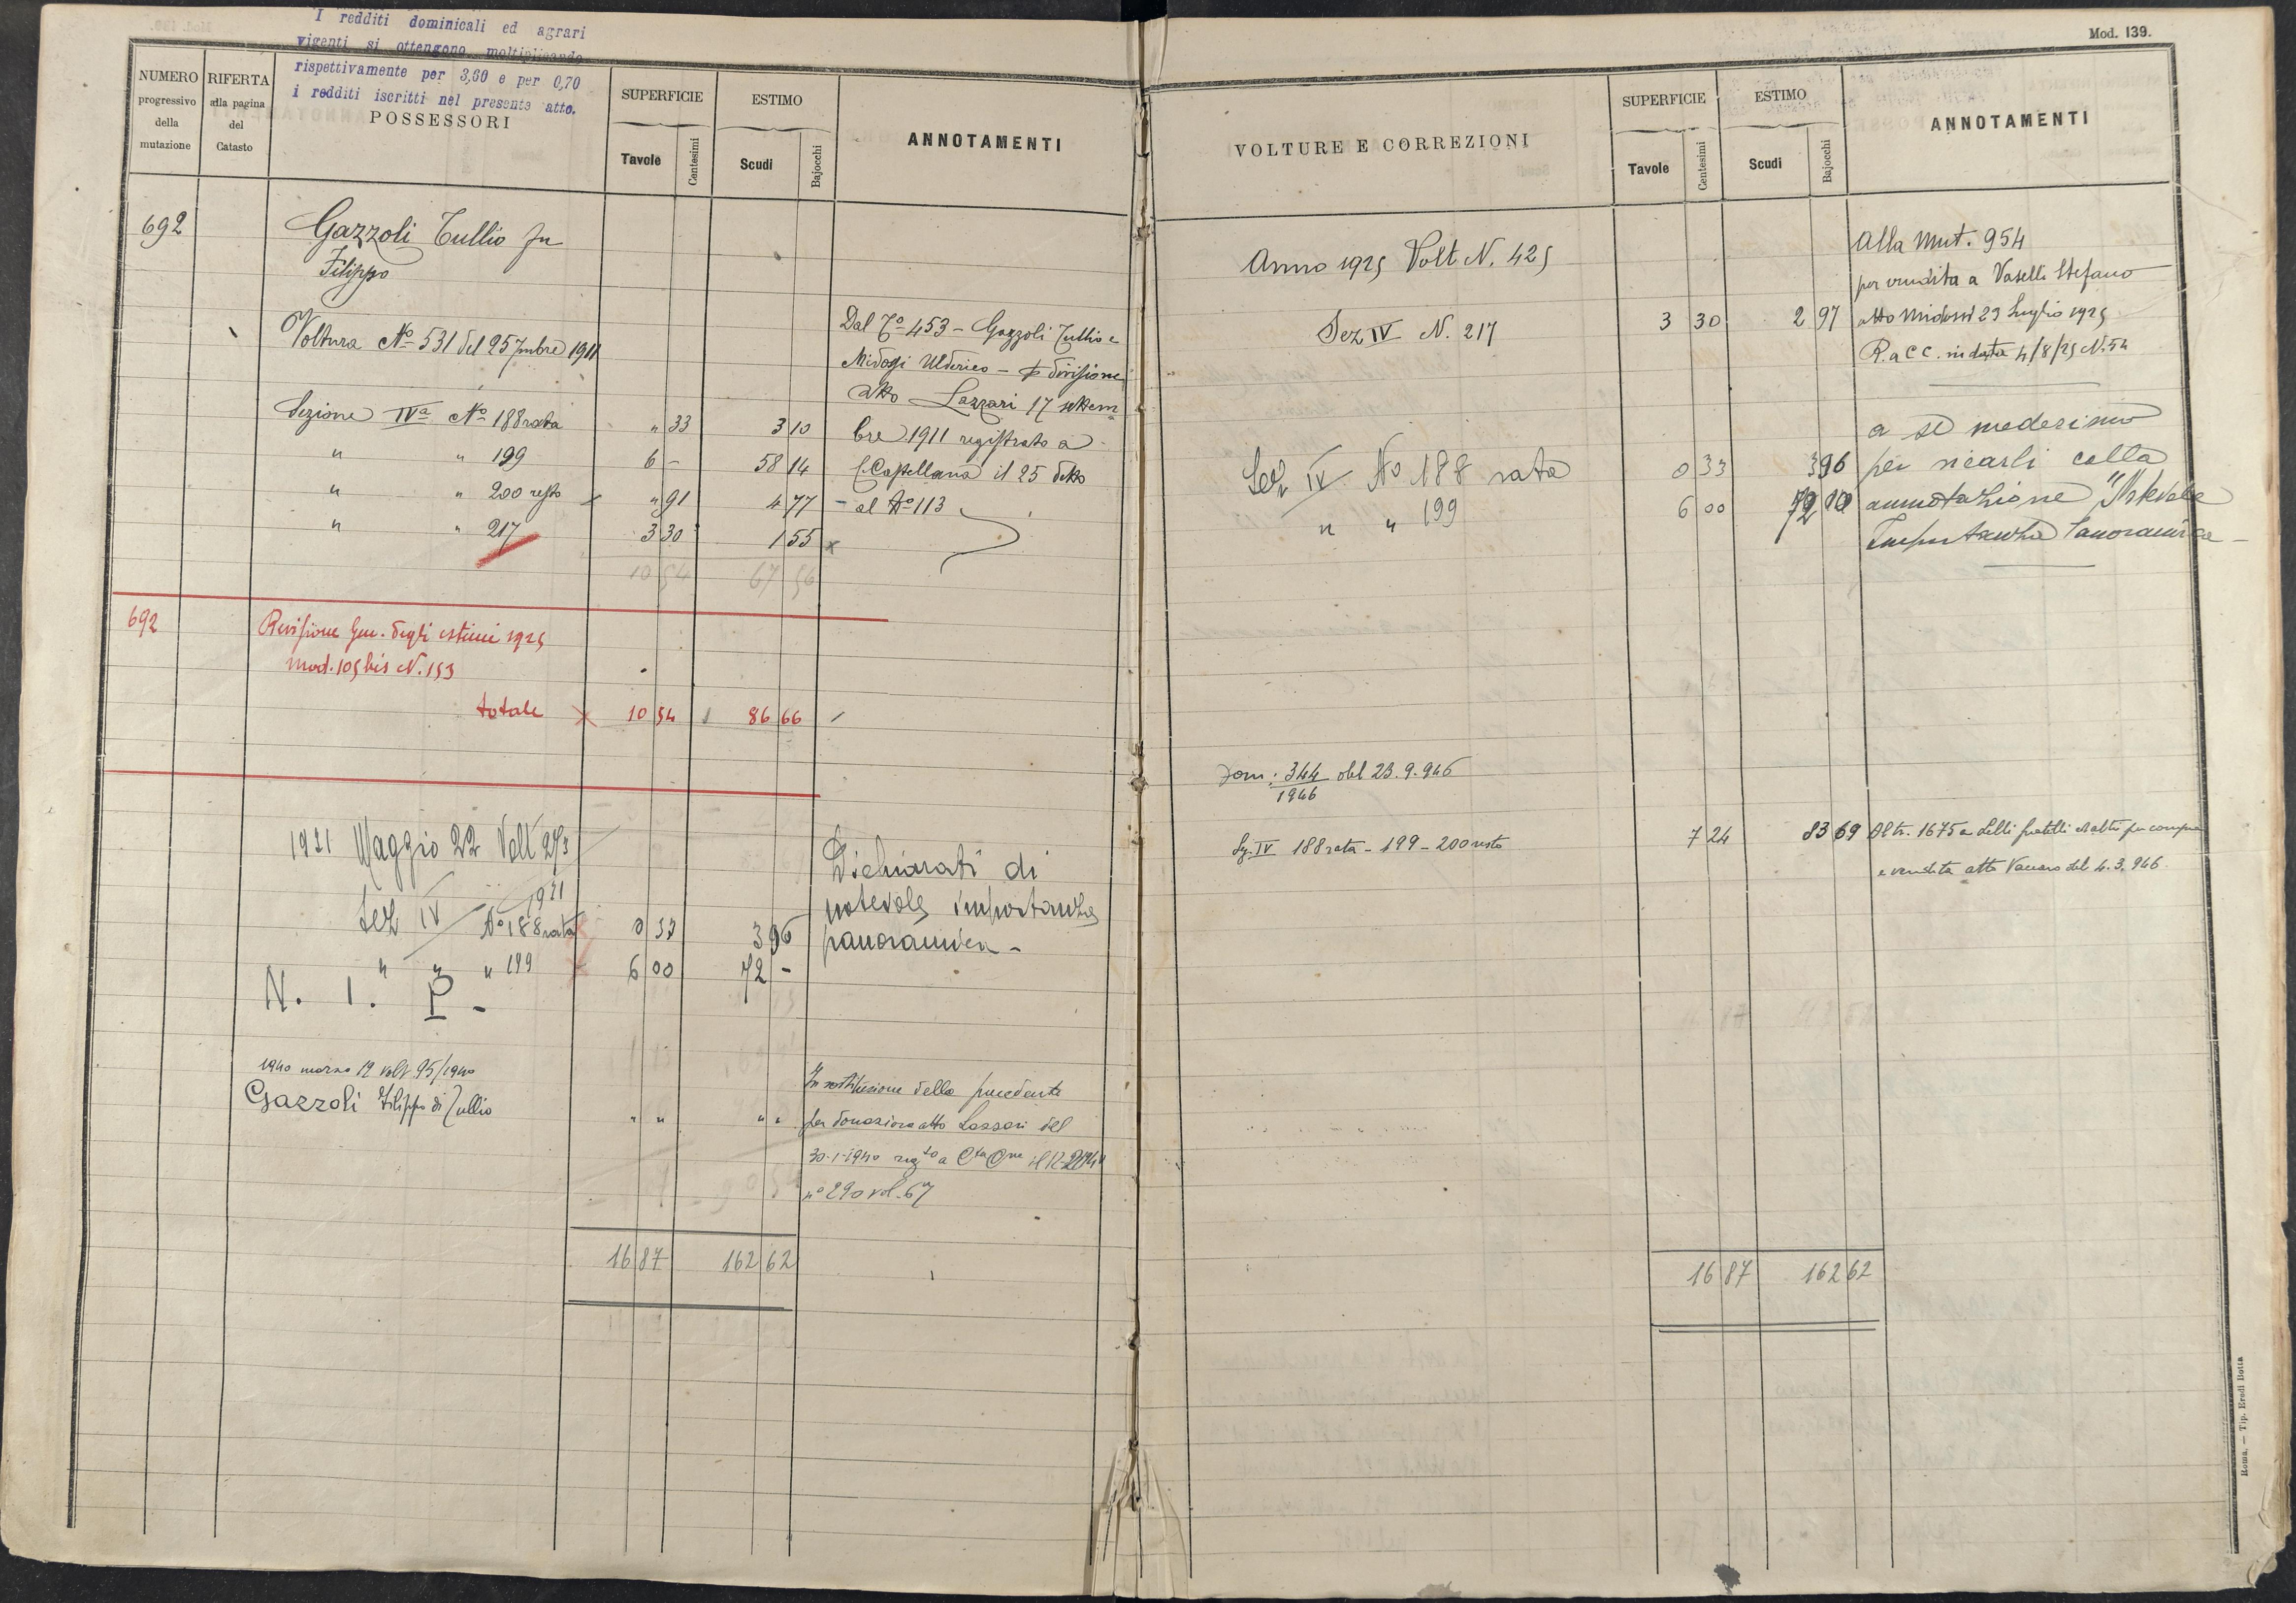 I redditi dominicali ed agrari
vigenti si ottengono moltiplicando
rispettivamente per 3,60 e per 0,70
i redditi iscritti nel presente atto.
NUMERO progressivo della mutazione
RIFERTA alla pagina del Catasto
POSSESSORI
SUPERFICIE
Tavole Centesimi
ESTIMO
Scudi Bajocchi
ANNOTAMENTI
692 Gazzoli Tullio fu
Filippo
Voltura No 531 del 25 7mbre 1911
Dal To 453 - Gazzoli Tullio e
Midossi Ulderico - p divisione
atto Lazzari 17 settem
bre 1911 registrato a
C. Castellana il 25 detto
al No 113
Sezione IVa No 188 rata " 33 3 10
" " 199 6 - 58 14
" " 200 resto " 91 4 77
" " 217 3 30 1 55
10 54 67 56
692 Revisione Gen. degli estimi 1925
mod. 105 bis N. 153
totale 10 54 86 66
1931 Maggio 22 Volt 273
1931
Sez IV No 188 rata 0 33 3 96
" " " 199 6 00 72 -
N. I. P -
Dichiarati di
notevole importanza
panoramica -
1940 marzo 19 Volt 95/1940
Gazzoli Filippo di Tullio " " " "
In sostituzione della precedente
per donazione atto Lazzari del
30-1-1940 regto a Cta Cna il
no 290 vol. 67
16 87 162 62
Mod. 139.
VOLTURE E CORREZIONI
SUPERFICIE
Tavole Centesimi
ESTIMO
Scudi Bajocchi
ANNOTAMENTI
Anno 1925 Volt. N. 425
Sez IV N. 217 3 30 2 97
Alla Mut. 954
per vendita a Vaselli Stefano
atto Midossi 23 Luglio 1925
R. a C C. in data 4/8/25 N. 54
Sez IV No 188 rata 0 33 3 96
" " 199 6 00 72 00
a se medesimo
per ricarli colla
annotazione "Notevole
Importanza Panoramica -
Dom: 344/1946 del 23.9.946
Sez. IV 188 rata - 199 - 200 resto 7 24 83 69
Al tr. 1675 a Lelli fratelli e altri per compra
e vendita atto Vaccaro del 4.3.946
16 87 162 62
Roma. — Tip. Eredi Botta